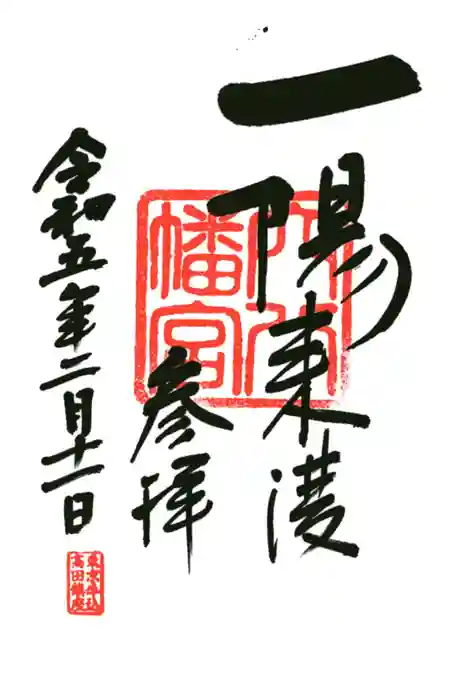 一陽来復
穴八幡宮
参拝
令和五年二月十一日
東京牛込
高田鎮座